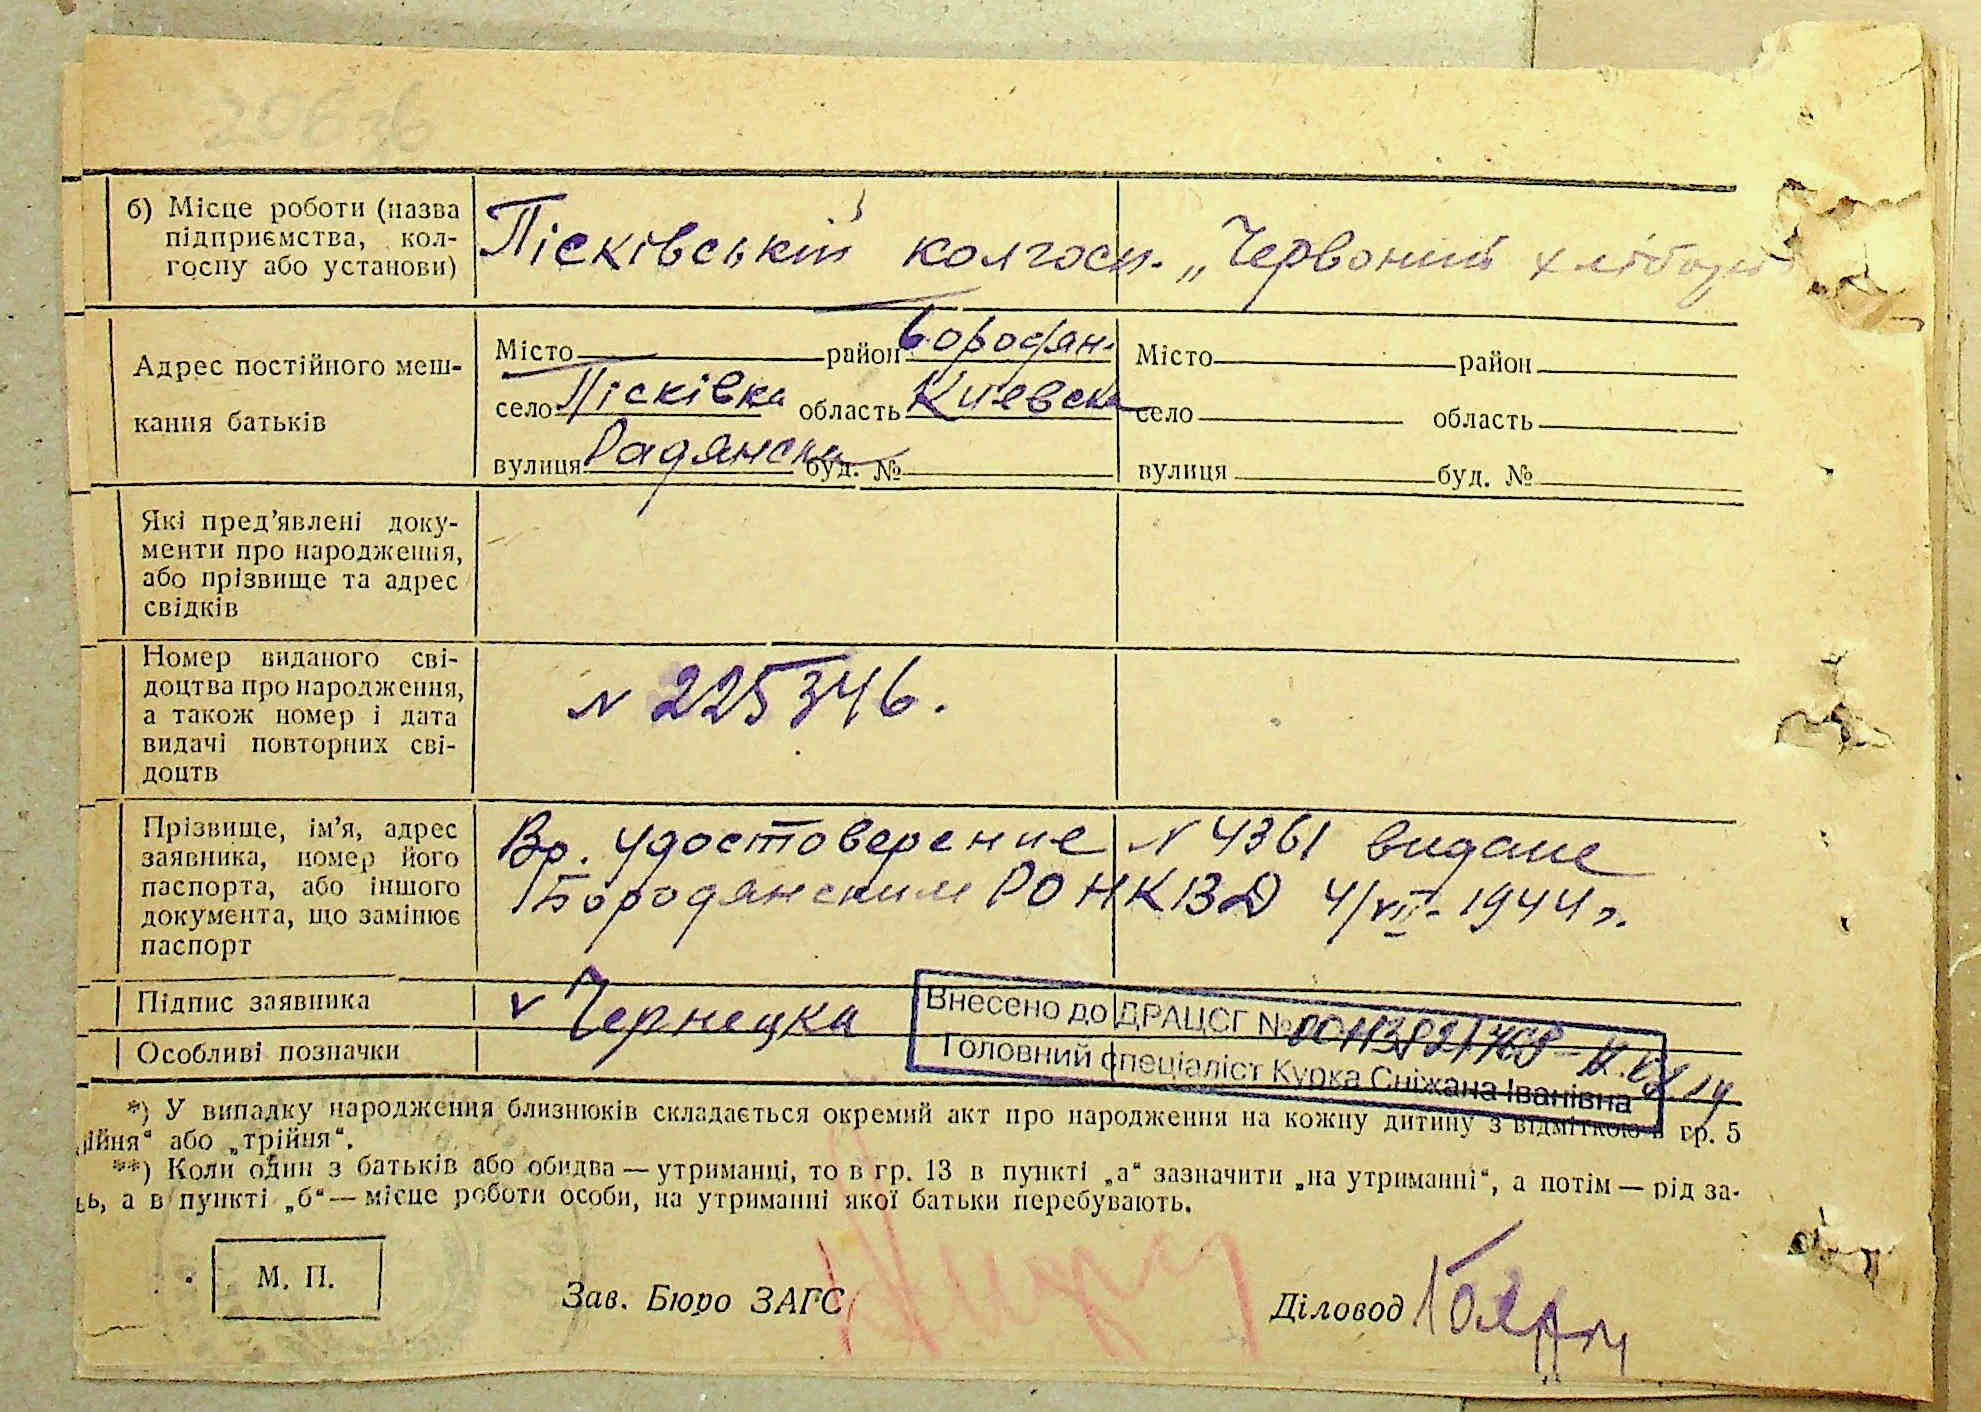 б) Місце роботи (назва
підприємства, кол-
госпу або установи)
Пісківський колгосп. „Червоний хлібороб
Адрес постійного меш-
кання батьків
Місто район Бородян. Місто район
село Пісківка область Киевска село область
вулиця Радянска буд. № вулиця буд. №
Які пред'явлені доку-
менти про народження,
або прізвище та адрес
свідків
Номер виданого сві-
доцтва про народження,
а також номер і дата
видачі повторних сві-
доцтв
№ 225346.
Прізвище, ім'я, адрес
заявника, номер його
паспорта, або іншого
документа, що замінює
паспорт
Вр. удостоверение № 4361 видане
Бородянским РО НКВД 4/VII-1944 г.
Підпис заявника
v Чернецка
Особливі позначки
Внесено до ДРАЦСГ №
Головний спеціаліст Курка Сніжана Іванівна
*) У випадку народження близнюків складається окремий акт про народження на кожну дитину з відміткою в гр. 5
ійня“ або „трійня“.
**) Коли один з батьків або обидва — утриманці, то в гр. 13 в пункті „а“ зазначити „на утриманні“, а потім — рід за-
ь, а в пункті „б“ — місце роботи особи, на утриманні якої батьки перебувають.
М. П.
Зав. Бюро ЗАГС
Діловод